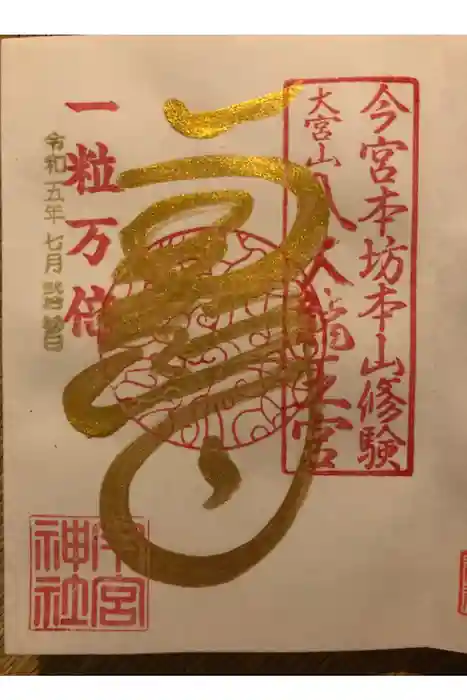 今宮本坊本山修験
大宮山八大龍王宮
一粒万倍
令和五年七月
今宮神社